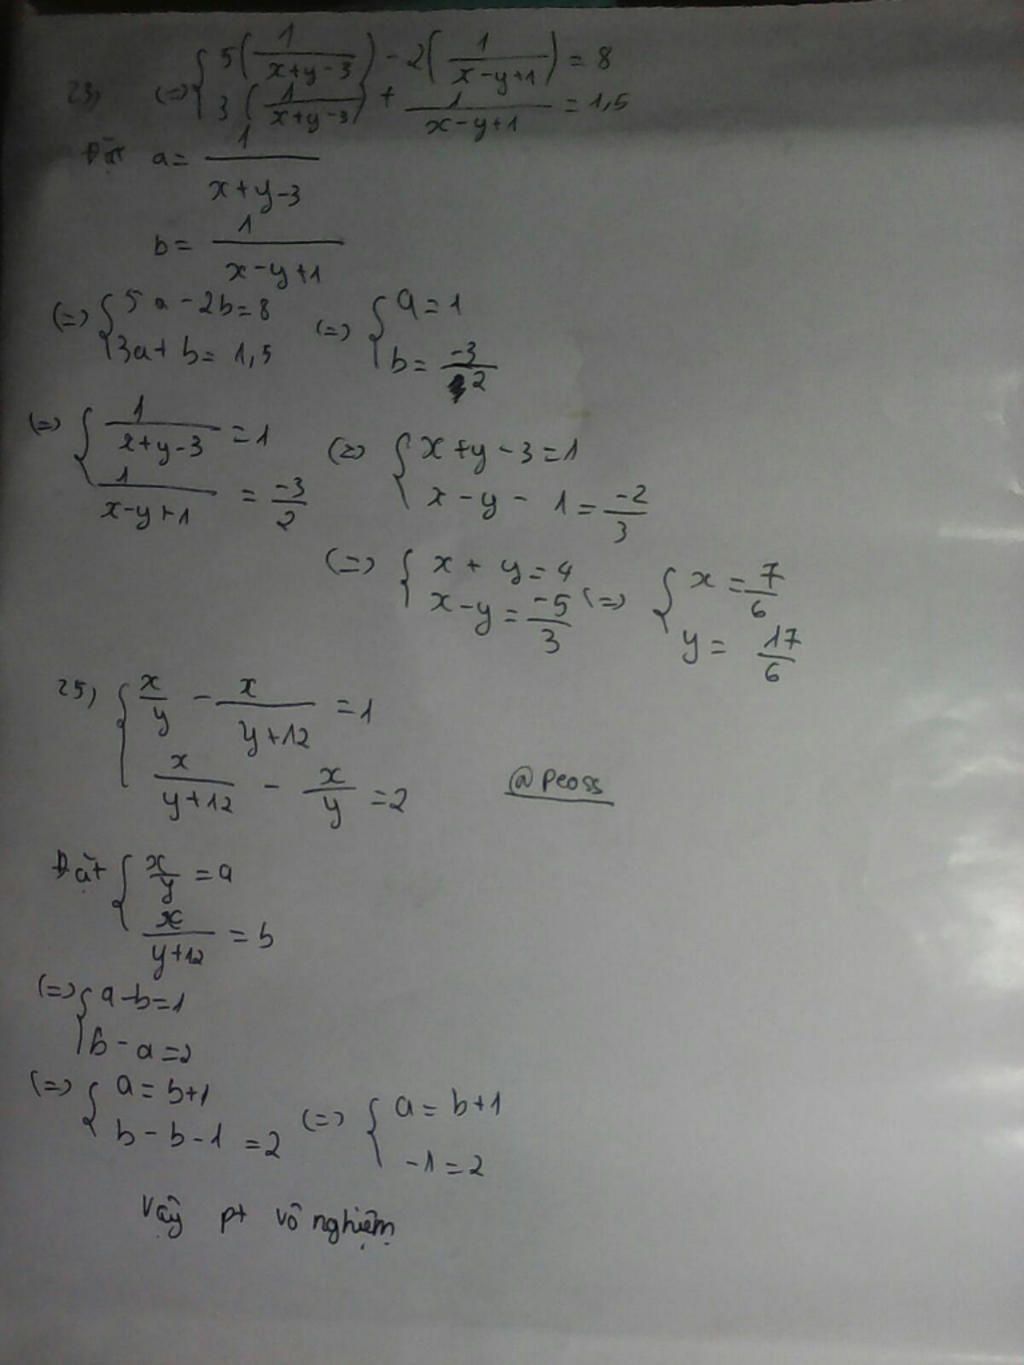 23) (=) { 5(1/(x+y-3)) - 2(1/(x-y+1)) = 8
3(1/(x+y-3)) + 1/(x-y+1) = 1,5
Đặt a = 1/(x+y-3)
b = 1/(x-y+1)
(=) { 5a - 2b = 8 (=) { a = 1
3a + b = 1,5 b = -3/2
(=) { 1/(x+y-3) = 1 (=) { x+y-3 = 1
1/(x-y+1) = -3/2 x-y-1 = -2/3
(=) { x+y = 4 (=) { x = 7/6
x-y = -5/3 y = 17/6
25) { x/y - x/(y+12) = 1
x/(y+12) - x/y = 2
@Peoss
Đặt { x/y = a
x/(y+12) = b
(=) { a-b = 1
b-a = 2
(=) { a = b+1 (=) { a = b+1
b-b-1 = 2 -1 = 2
Vậy pt vô nghiệm